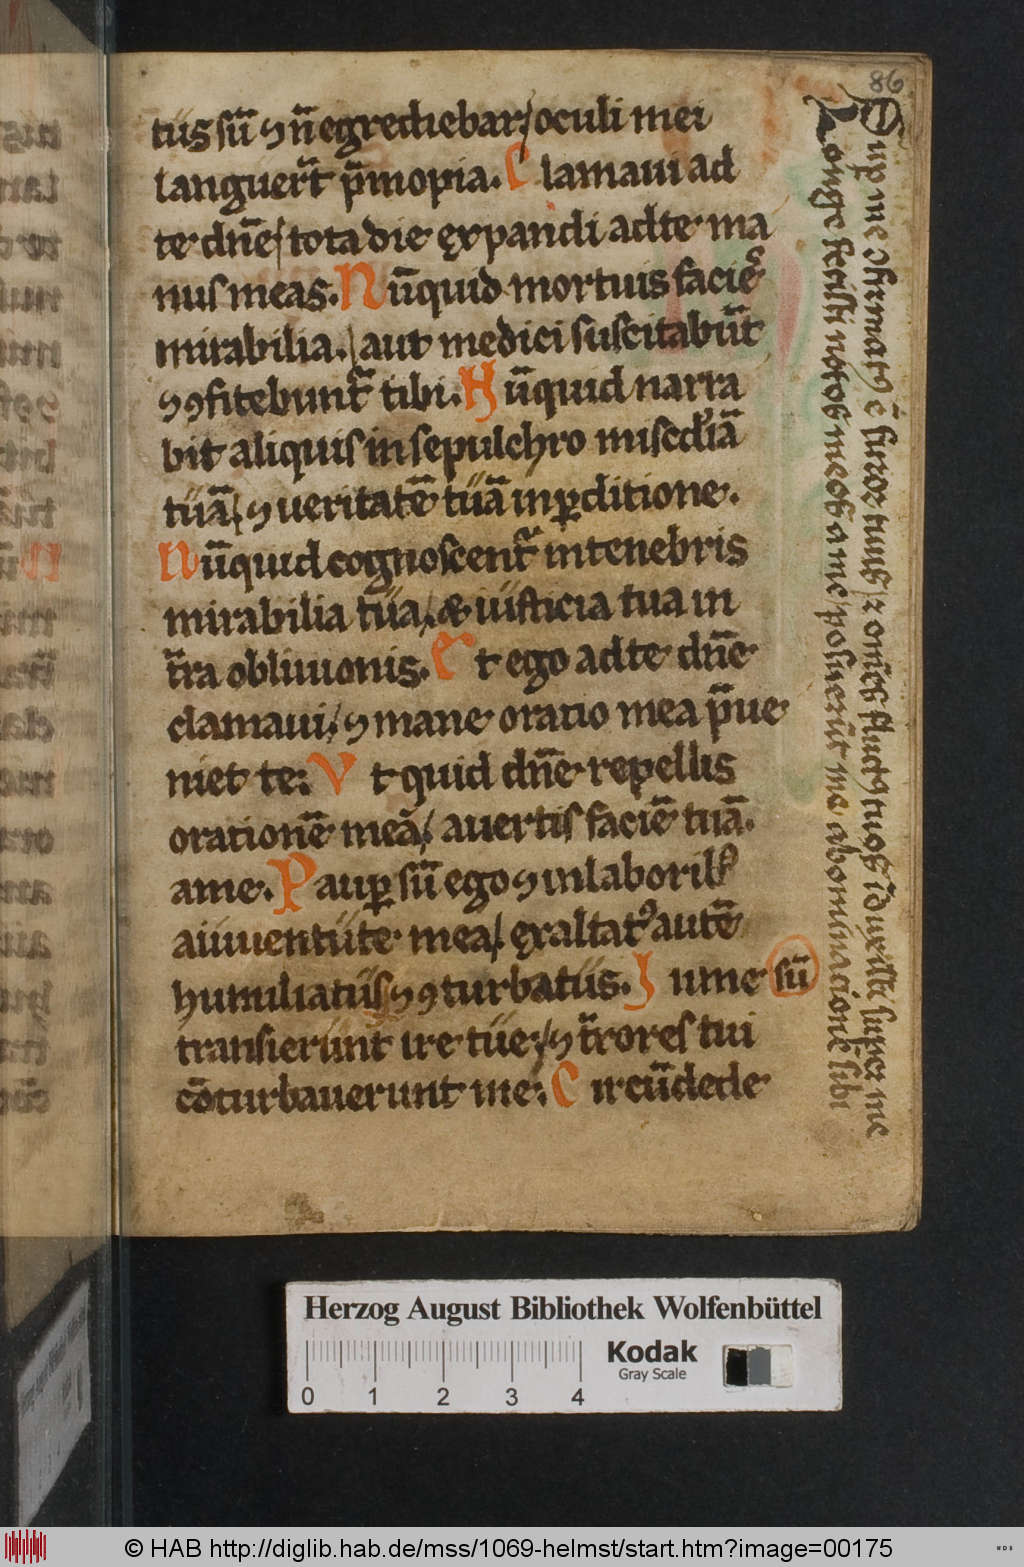 86
tus sū ⁊ n̄ egrediebar / oculi mei
languer̄t p̄ inopia. Clamaui ad
te dn̄e / tota die expandi ad te ma
nus meas. Nūquid mortuis facieˢ
mirabilia. / aut medici suscitabūt
⁊ ꝯfitebunt᷑ tibi. Nūquid narra
bit aliquis in sepulchro miscd'iā
tuā / ⁊ ueritatē tuā in ꝑditione.
Nūquid cognoscent᷑ in tenebris
mirabilia tua / & iusticia tua in
t̄ra obliuionis. Et ego ad te dn̄e
clamaui / ⁊ mane oratio mea p̄ue
niet te: Vt quid dn̄e repellis
orationē meā / auertis faciē tuā.
a me. Pauꝑ sū ego ⁊ in laboribꝰ
a iuuentute mea / exaltatꝰ autē
humiliatus ⁊ ꝯturbatus. In me sū
transierunt ire tue: / ⁊ t̄rores tui
cōturbauerunt me: Circūdede
Sup me ꝯfirmatꝰ ē furor tuus / ⁊ om̄es fluctꝰ tuos īduxisti super me
Longe fecisti notos meos a me posuerūt me abominacionē sibi
Herzog August Bibliothek Wolfenbüttel
Kodak
Gray Scale
0 1 2 3 4
© HAB http://diglib.hab.de/mss/1069-helmst/start.htm?image=00175